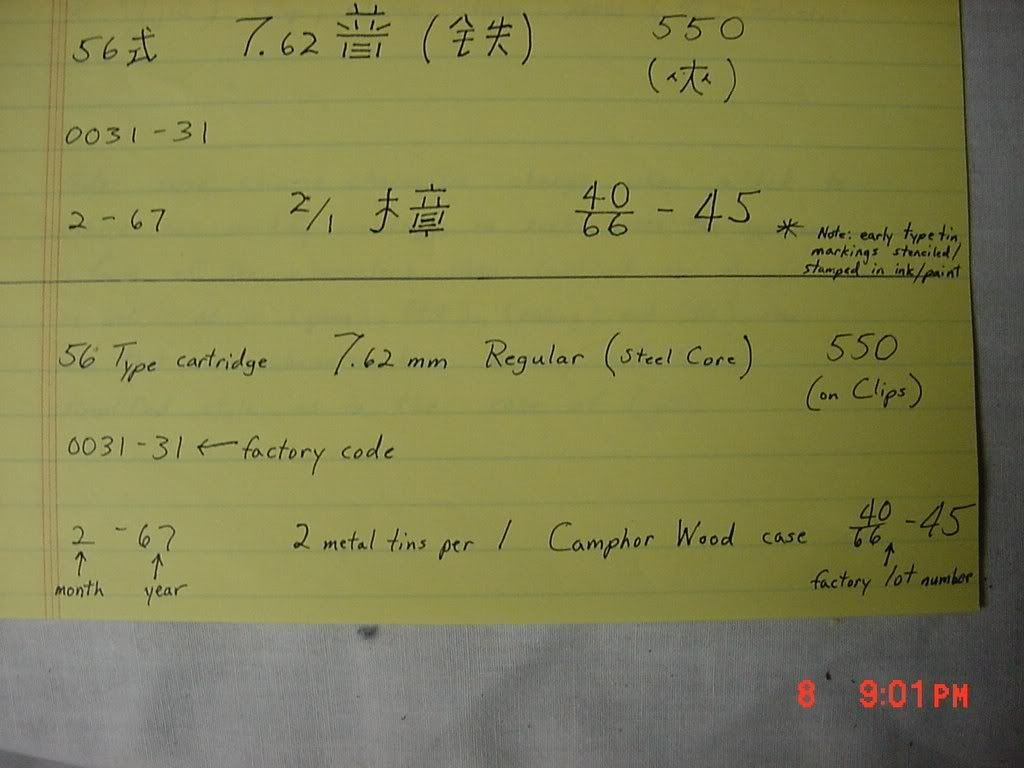 56式 7.62 普 (铁) 550
(夹)
0031-31
2-67 2/1 樟 40/66 - 45
* Note: early type tin
markings stenciled/
stamped in ink/paint
56 Type cartridge 7.62 mm Regular (Steel Core) 550
(on Clips)
0031-31 ← factory code
2 - 67 2 metal tins per 1 Camphor Wood case 40/66 - 45
↑ month ↑ year ↑ factory lot number
8 9:01PM